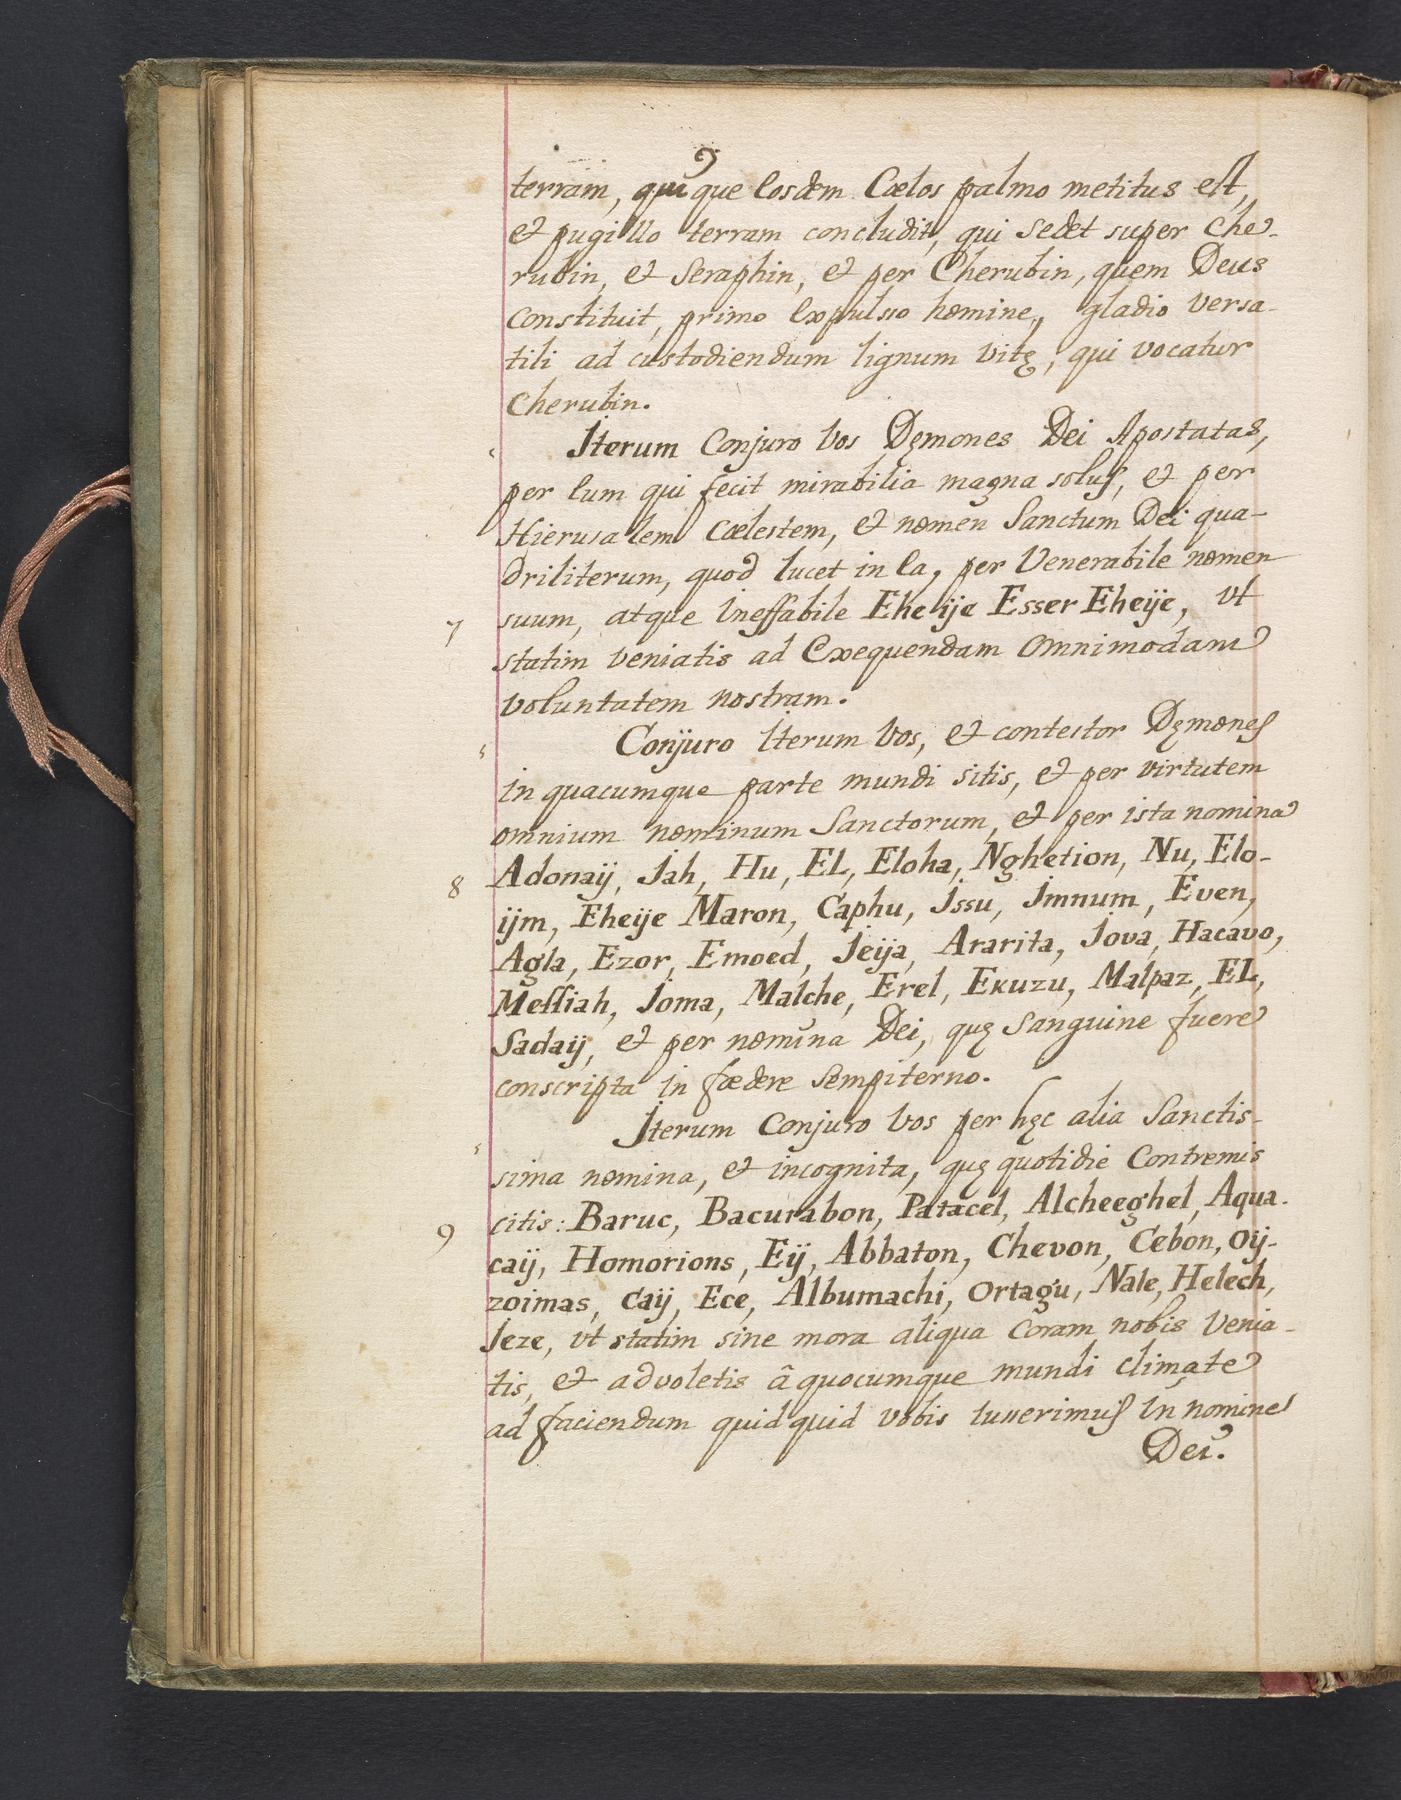 terram, quique eosdem Cœlos palmo metitus est,
et pugillo terram concludit, qui sedet super Che-
rubin, et Seraphin, et per Cherubin, quem Deus
constituit, primo expulso homine, gladio versa-
tili ad custodiendum lignum vitę, qui vocatur
Cherubin.
Iterum Conjuro vos Dęmones Dei Apostatas,
per eum qui fecit mirabilia magna solus, et per
Hierusalem Cœlestem, et nomen Sanctum Dei qua-
driliterum, quod lucet in ea, per Venerabile nomen
7 suum, atque ineffabile Eheije Esser Eheije, vt
statim veniatis ad Exequendam Omnimodam
voluntatem nostram.
Conjuro iterum vos, et contestor Dęmones
in quacumque parte mundi sitis, et per virtutem
omnium nominum Sanctorum, et per ista nomina
8 Adonaij, Jah, Hu, EL, Eloha, Nghetion, Nu, Elo-
ijm, Eheije Maron, Caphu, Jssu, Jmnum, Even,
Agla, Ezor, Emoed, Jeija, Ararita, Jova, Hacavo,
Messiah, Joma, Malche, Erel, Exuzu, Malpaz, EL,
Sadaij, et per nomina Dei, quę Sanguine fuere
conscripta in fœdere Sempiterno.
Iterum Conjuro vos per hęc alia Sanctis-
sima nomina, et incognita, quę quotidie Contremis
9 citis: Baruc, Bacurabon, Patacel, Alcheeghel, Aqua-
caij, Homorions, Eij, Abbaton, Chevon, Cebon, Oij-
zoimas, Caij, Ece, Albumachi, Ortagu, Nale, Helech,
Jeze, vt statim sine mora aliqua Coram nobis venia-
tis, et advoletis â quocumque mundi climate
ad faciendum quidquid vobis iusserimus in nomine
Dei.